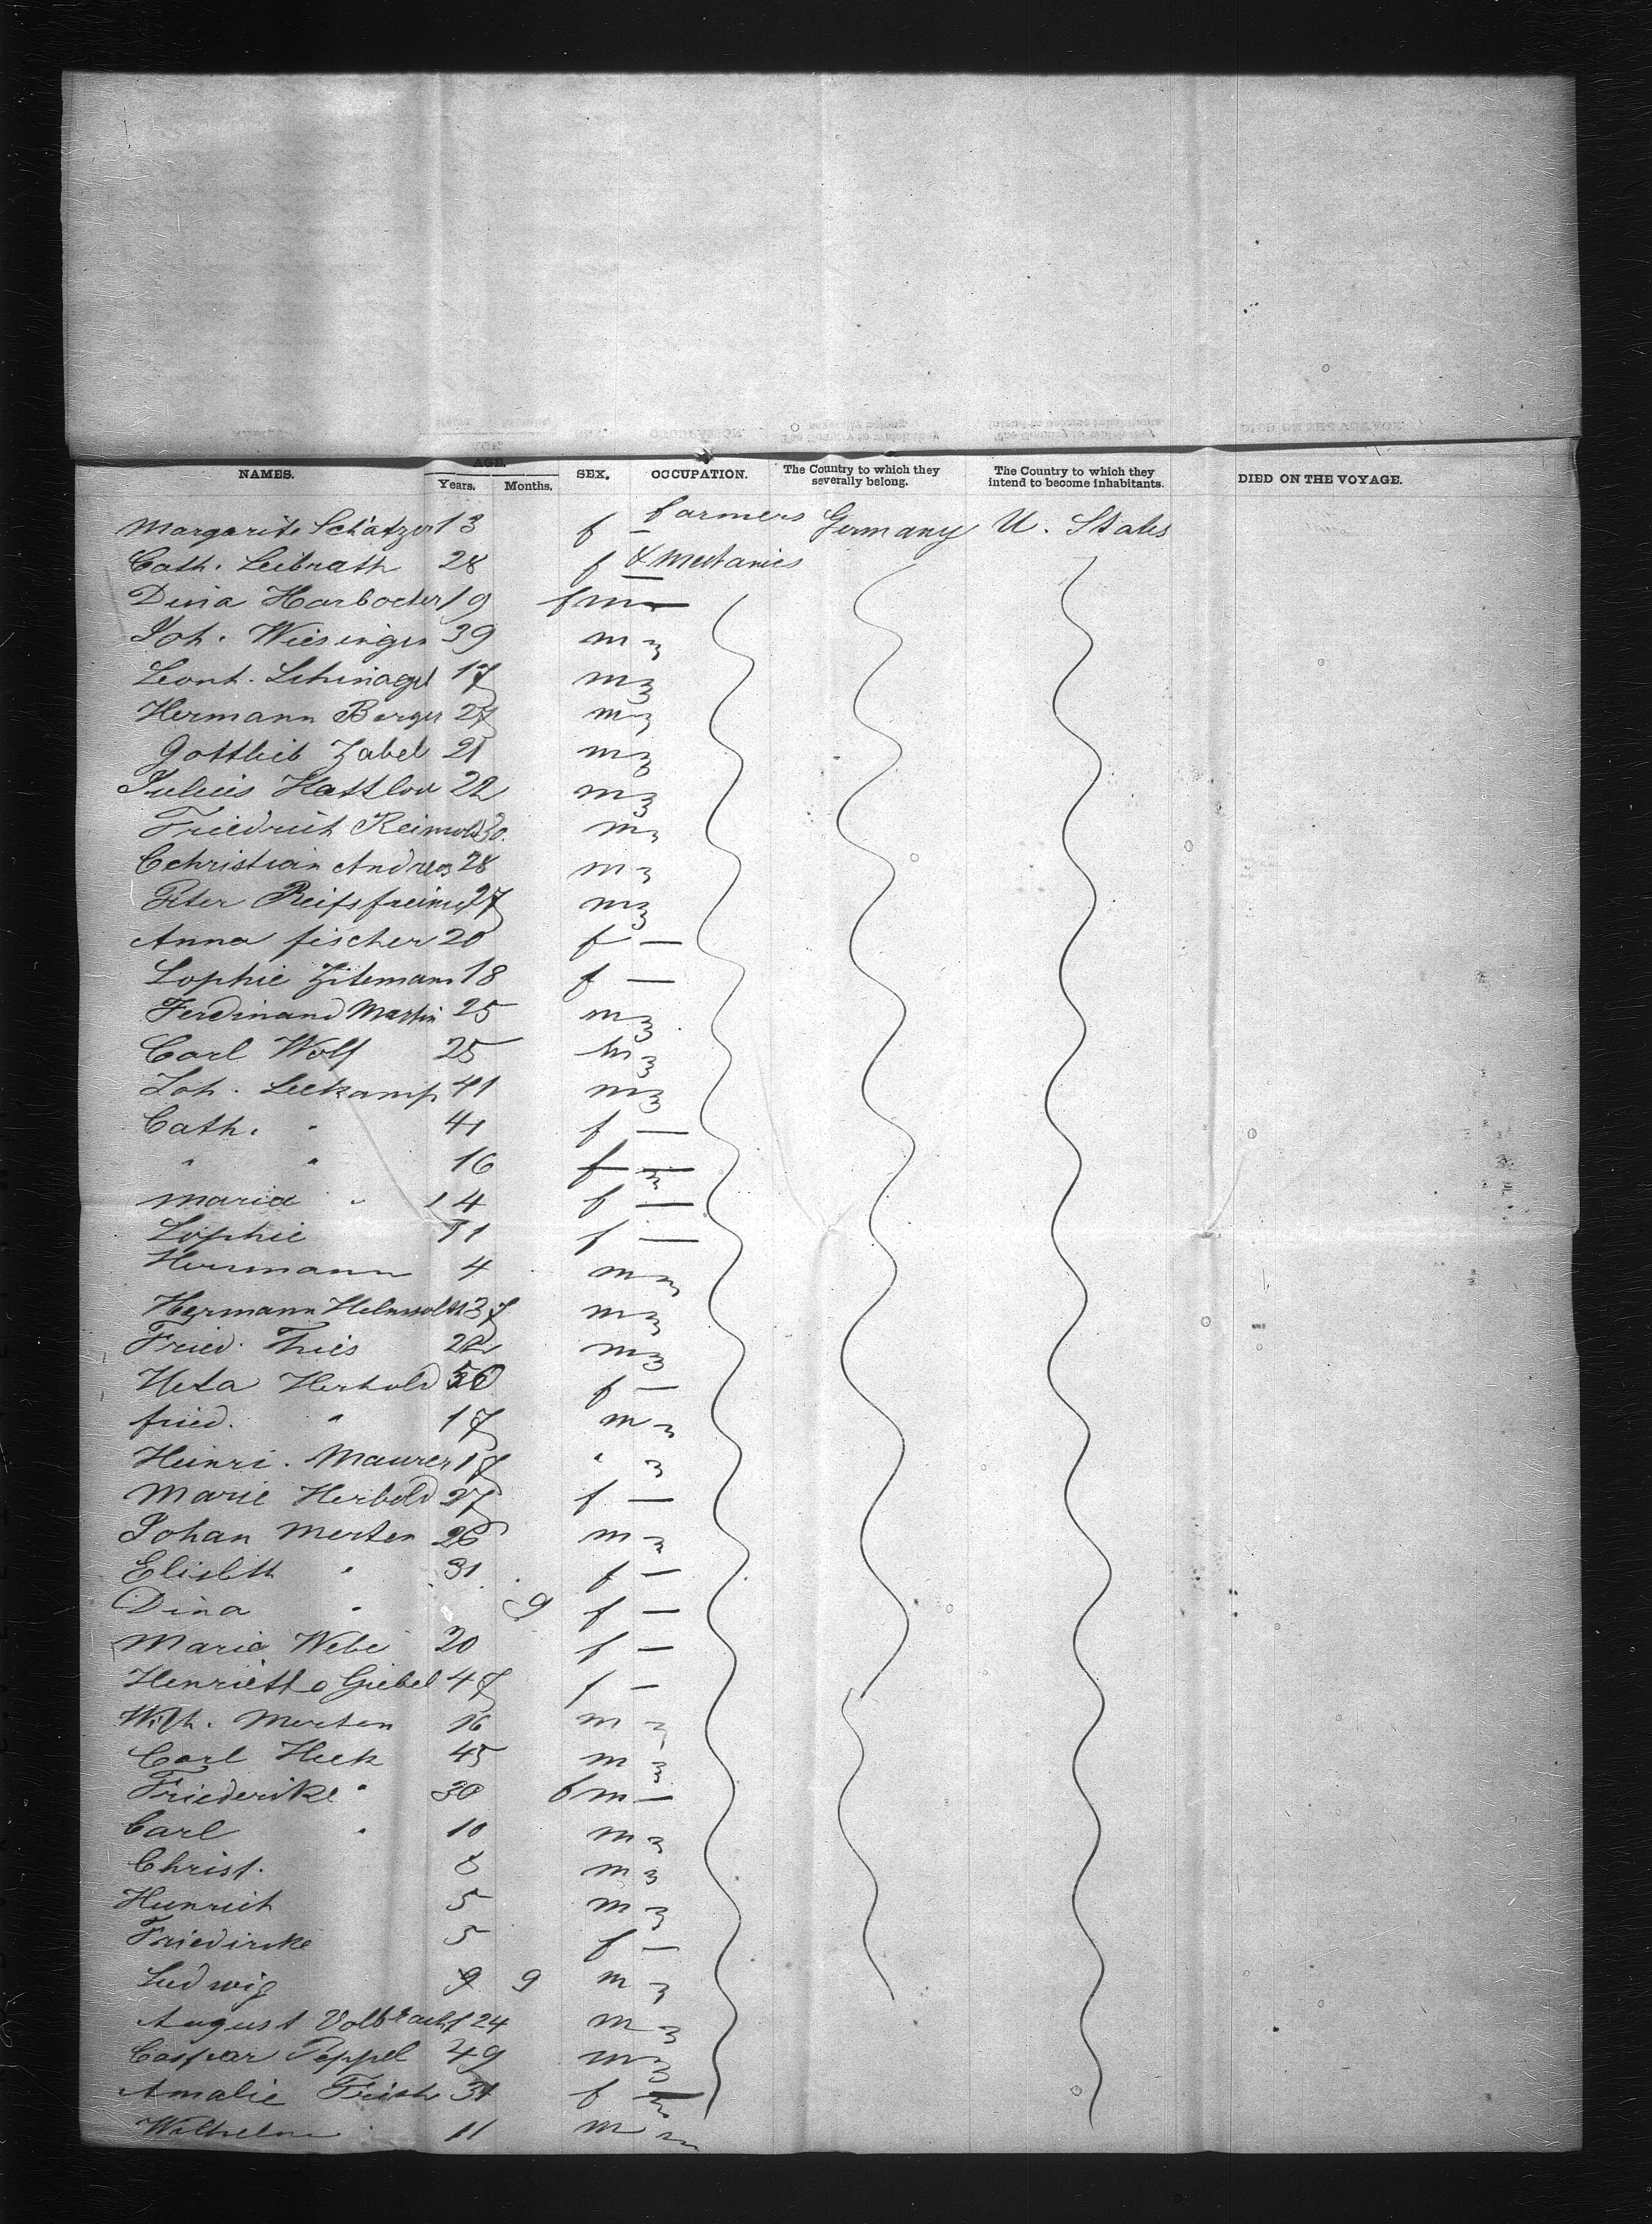 NAMES. AGE. SEX. OCCUPATION. The Country to which they severally belong. The Country to which they intend to become inhabitants. DIED ON THE VOYAGE.
Years. Months.
Margarite Schätzer 13 f — farmers Germany U. States
Cath. Leibrath 28 f & Mechanics
Dina Harbocter 19 f m —
Joh. Wiesinger 39 m
Leonh. Schinagel 17 m
Hermann Berger 27 m
Gottlieb Zabel 21 m
Julius Hattlow 22 m
Friedrich Reimold 30. m
Cchristian Andreas 28 m
Peter 27 m
Anna fischer 20 f —
Sophie Zitemann 18 f —
Ferdinand Martin 25 m
Carl Wolf 25 m
Joh. Leekamp 41 m
Cath. " 41 f —
" " 16 f —
Maria " 14 f —
Sophie 11 f —
Herrmann 4 m
Hermann 37 m
Fried. Thies 22 m
Meta Herbold 56 f —
fried. " 17 m
Heinri. Maurer 17 "
Marie Herbold 27 f —
Johan Merten 26 m
Elisbth " 31 f —
Dina " 9 f —
Maria Webe 20 f —
Henriette Giebel 47 f —
Wilh. Merten 16 m
Carl Heck 45 m
Friederike " 30 f m —
Carl " 10 m
Christ. 8 m
Heinrich 5 m
Friedircke 5 f —
Ludwig 9 9 m
August Volbracht 24 m
Caspar Peppel 49 m
Amalie 31 f
Wilhelm 11 m